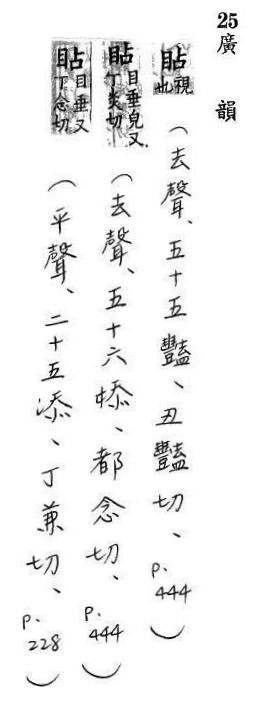 25 廣韻
䀡 視也 (去聲、五十五豔、丑豔切、p.444)
䀡 目垂皃又丁炎切 (去聲、五十六㮇、都念切、p.444)
䀡 目垂又丁念切 (平聲、二十五添、丁兼切、p.228)